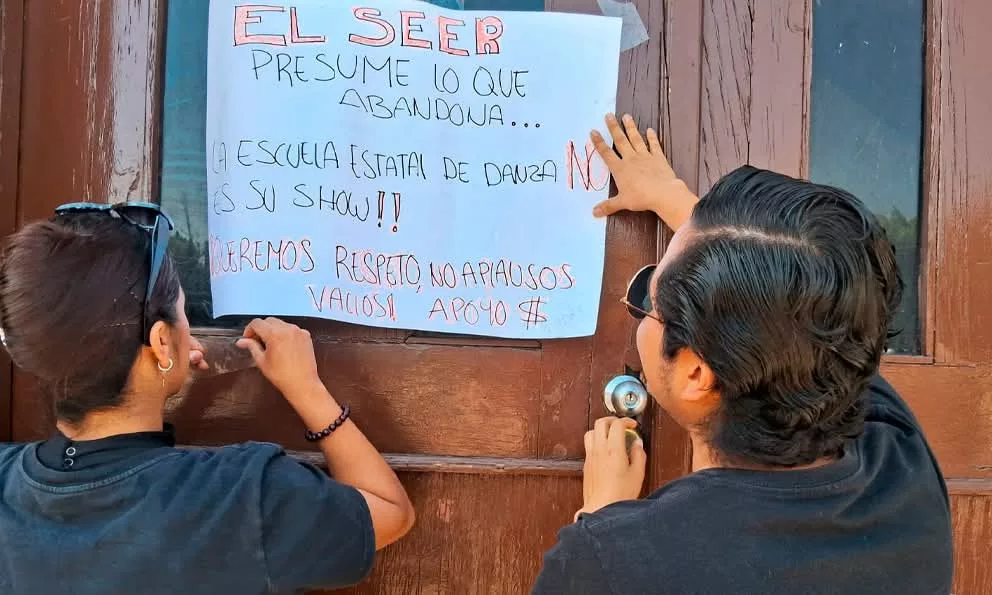 EL SEER
PRESUME LO QUE
ABANDONA...
LA ESCUELA ESTATAL DE DANZA NO
ES SU SHOW!!
QUEREMOS RESPETO, NO APLAUSOS
VACIOS! APOYO $